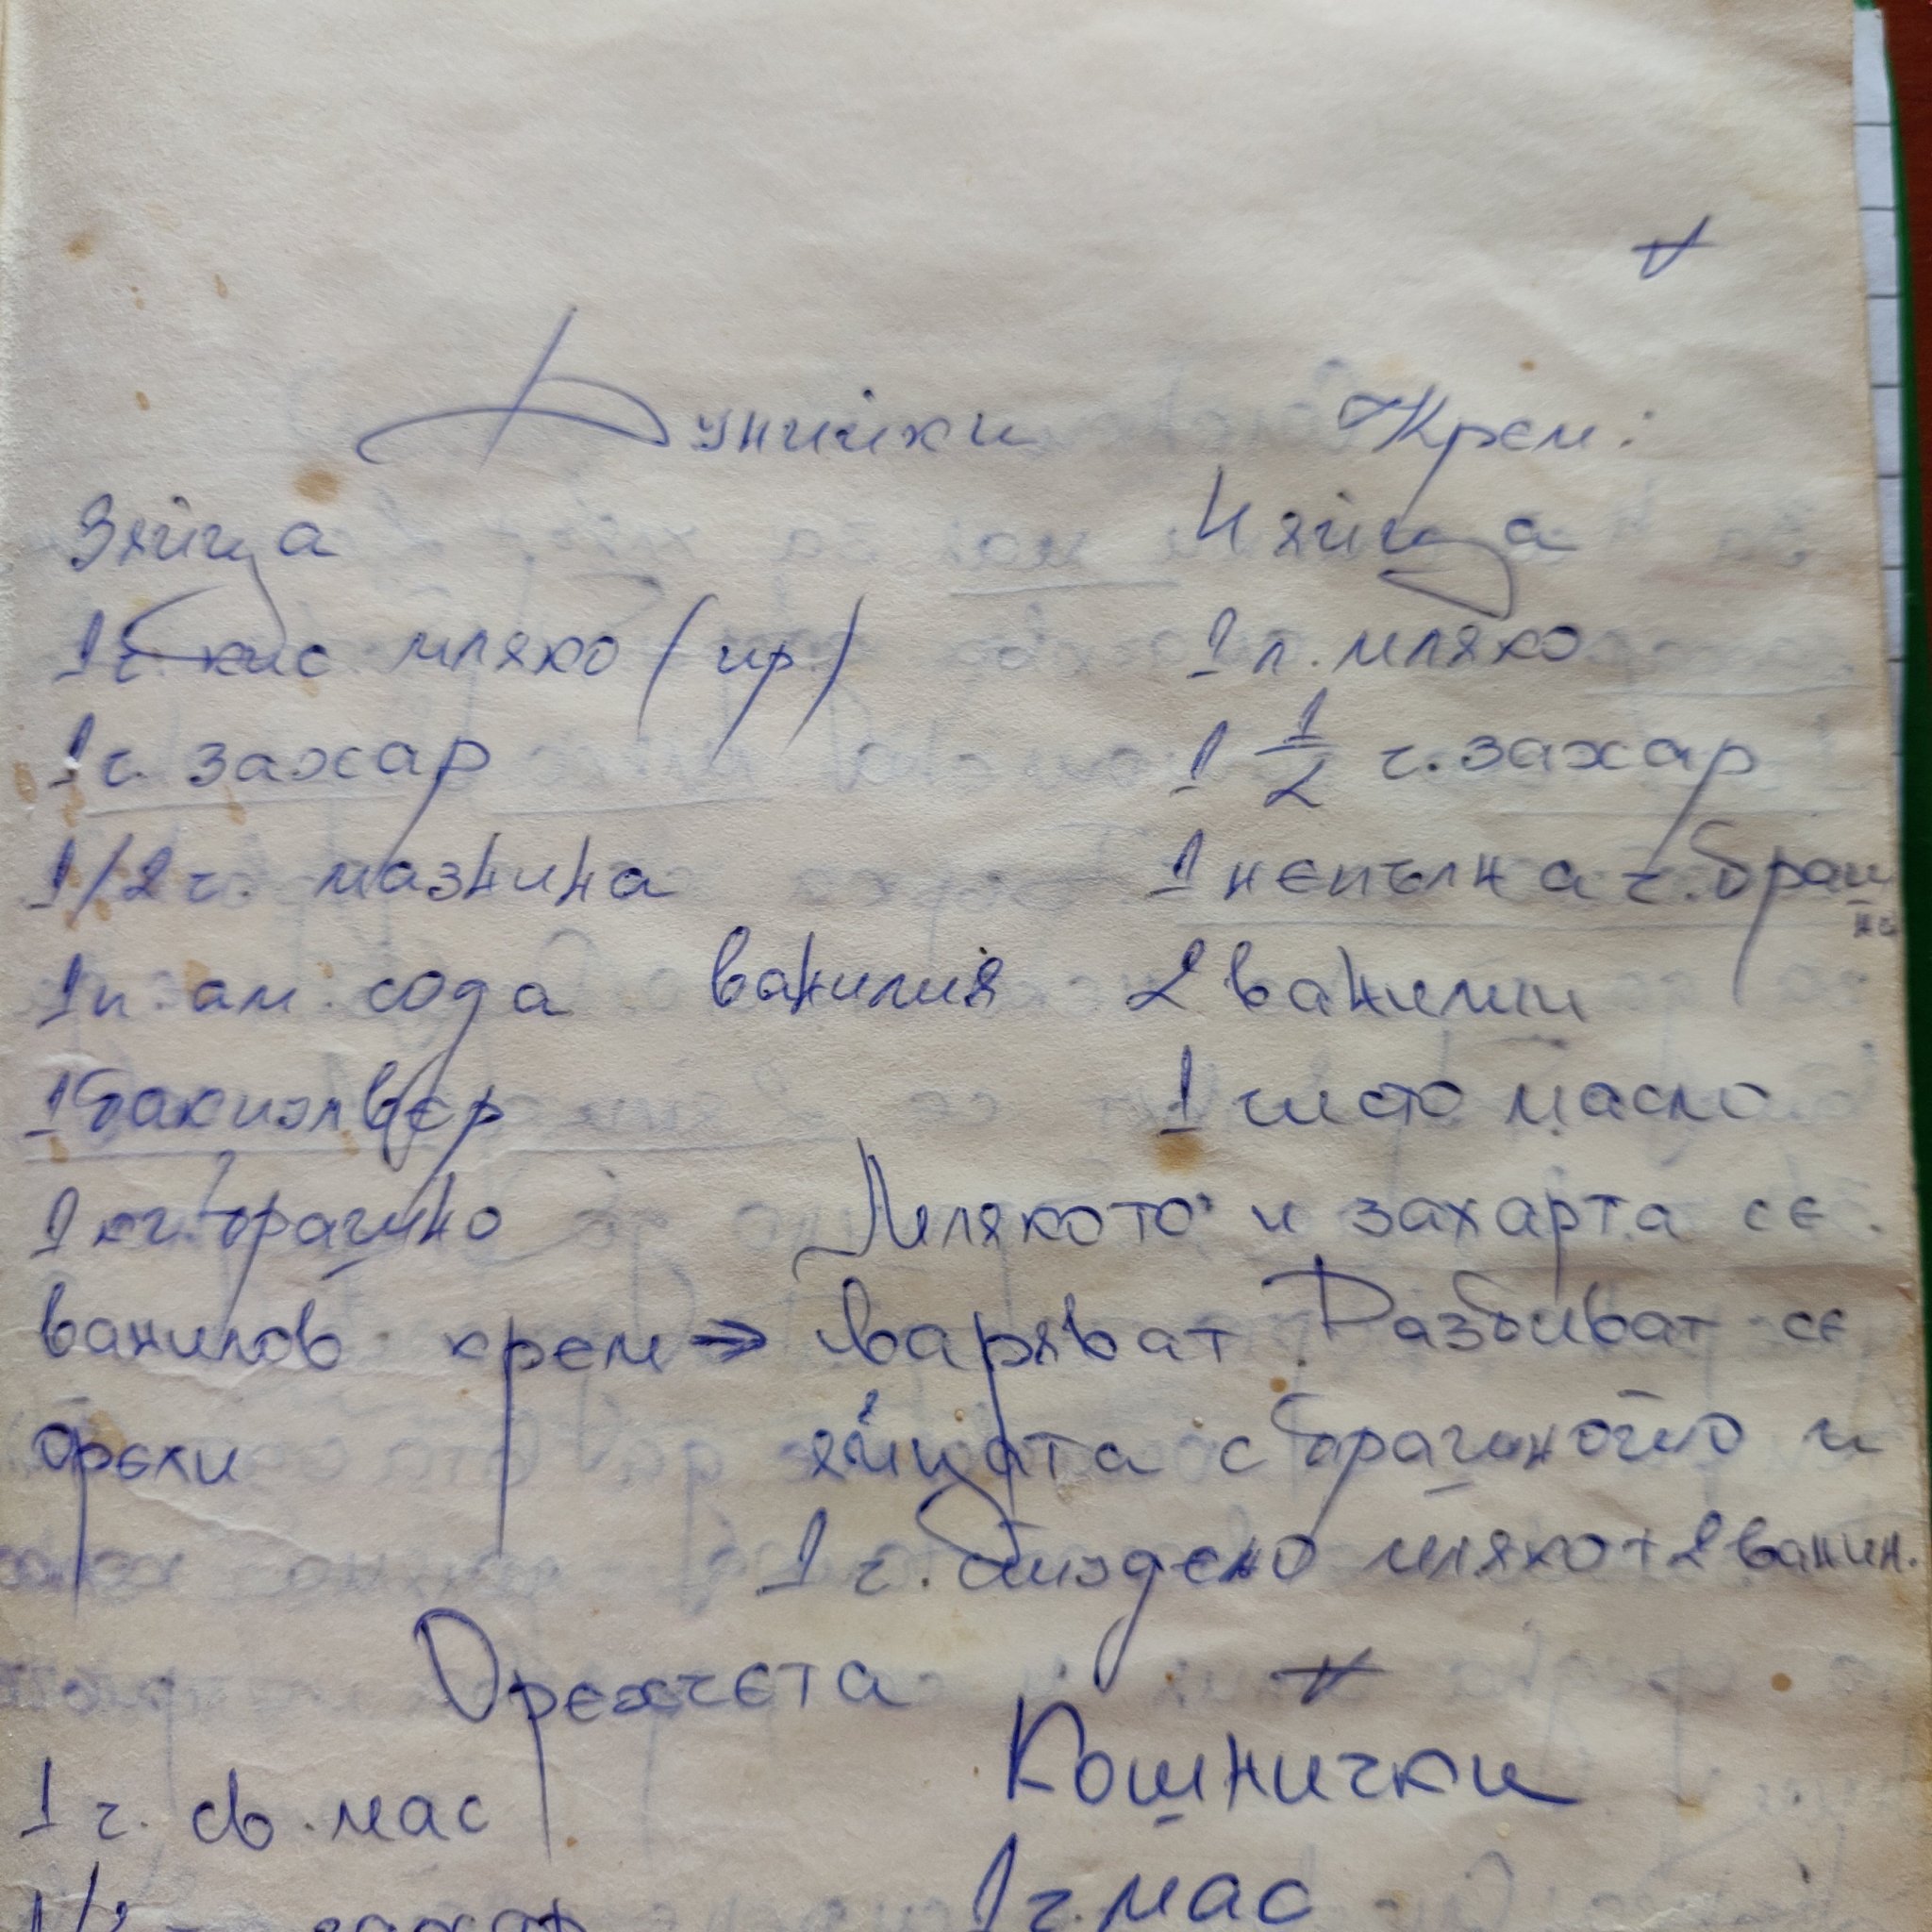 Дунийки
3 яйца
1 ч. кис мляко (пр)
1 ч. захар
1/2 ч. мазнина
1 л. ам. сода ванилия
1 бакпулвер
1 кг. брашно
ванилов крем →
орехи
Крем:
4 яйца
1 л. мляко
1 1/2 ч. захар
1 непълна ч. браш
но
2 ванилии
1 чисто масло
Млякото и захарта се
варяват. Разбиват се
яйцата с брашното и
1 ч. студено мляко + 2 ванил.
Орехчета
1 ч. св. мас
захар
Кошнички
1 ч. мас